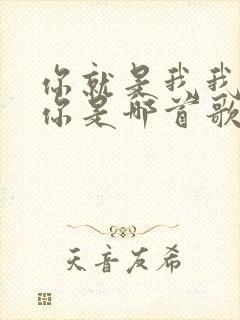 你就是我我
你是哪首歌
天音友希